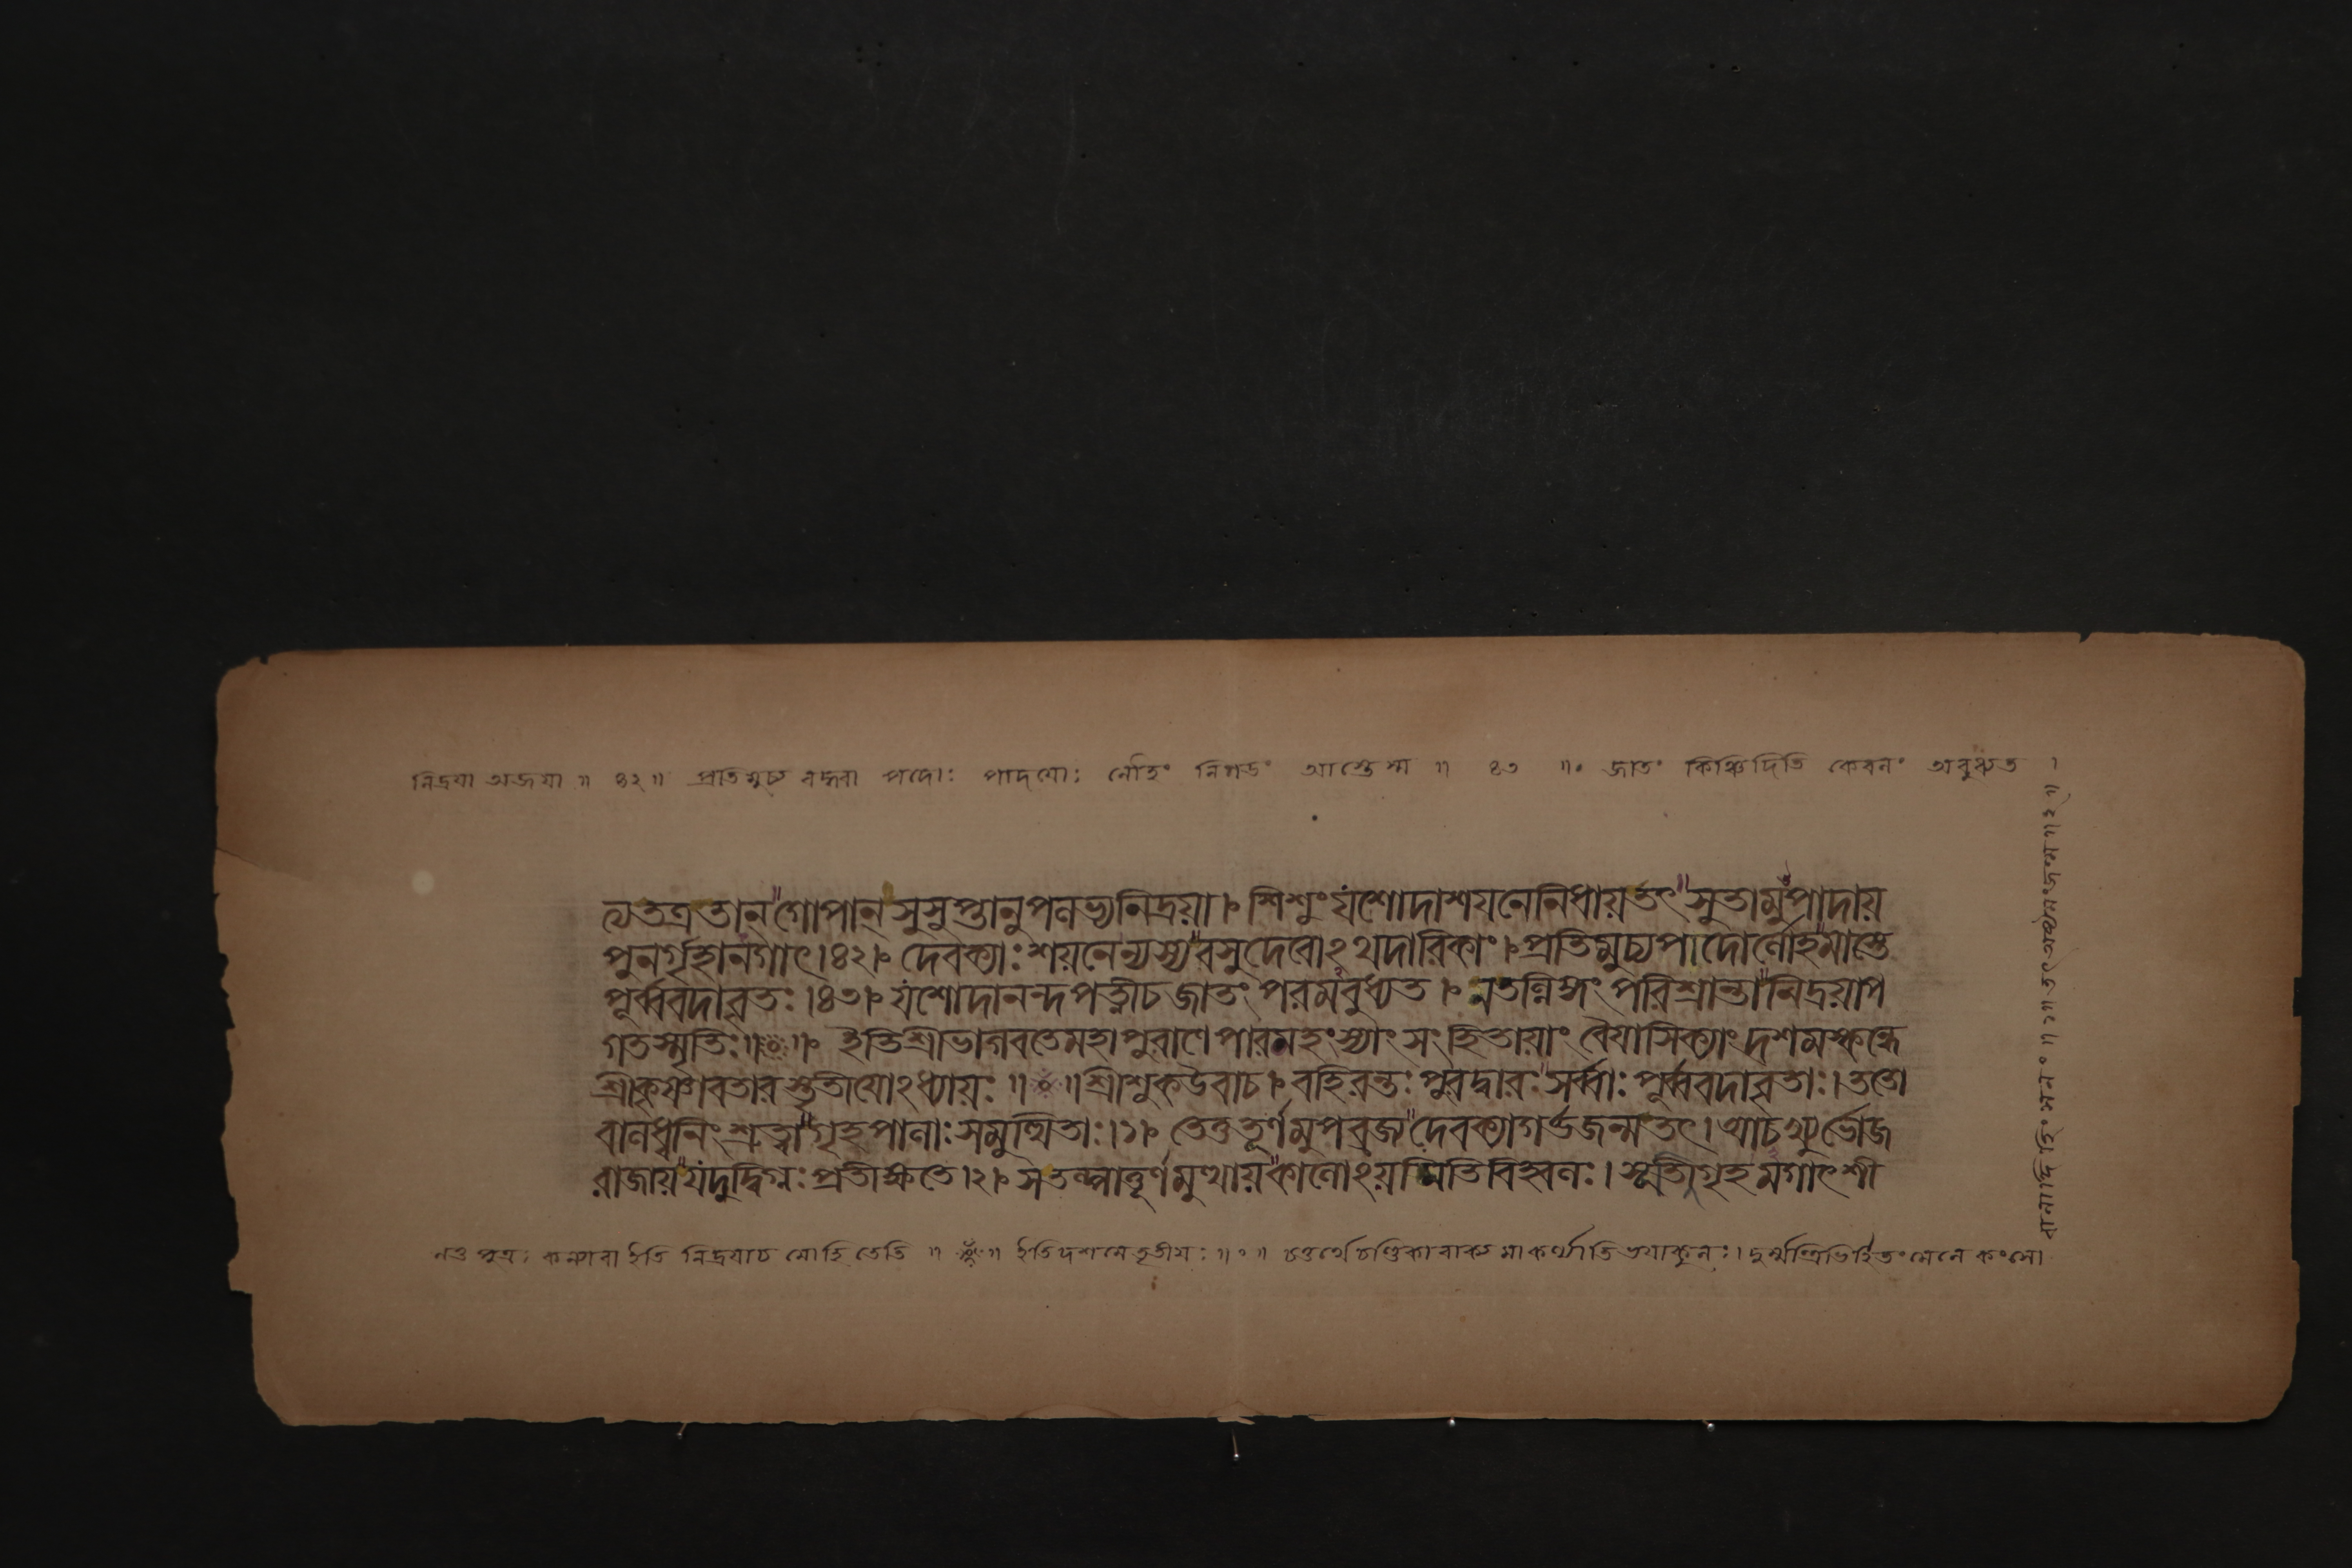 নিদ্রয়া অজয়া ॥ ৪২ ॥ প্রতিমুচ্য বদ্ধ্বা পদোঃ পাদয়োঃ লৌহং নিগডং আস্তেস্ম ॥ ৪৩ ॥॰ জাতং কিঞ্চিদিতি কেবলং অবুধ্যত ।
ত্যতত্রতান্ গোপান্ সুসুপ্তানুপলভ্যনিদ্রয়া । শিশুং যশোদাশয়নেনিধায়তৎ সুতামুপাদায়
পুনর্গৃহানগাৎ ।৪২। দেবক্যাঃ শয়নেন্যস্য বসুদেবোঽথদারিকাং । প্রতিমুচ্যপাদোর্লৌহমাস্তে
পূর্ব্ববদাবৃতঃ ।৪৩। যশোদানন্দপত্নীচজাতং পরমবুধ্যত । নতল্লিঙ্গং পরিশ্রান্তা নিদ্রয়াপ
গতস্মৃতিঃ ॥৹॥ ইতিশ্রীভাগবতেমহাপুরাণেপারমহংস্যাং সংহিতায়াং বৈয়াসিক্যাং দশমস্কন্ধে
শ্রীকৃষ্ণাবতারস্তৃতীয়োঽধ্যায়ঃ ॥৹॥ শ্রীশুকউবাচ । বহিরন্তঃ পুরদ্বারঃ সর্ব্বাঃ পূর্ব্ববদাবৃতাঃ । ততো
বালধ্বনিং শ্রুত্বা গৃহপালাঃ সমুত্থিতাঃ ।১। তেতুতূর্ণমুপব্রজ্য দেবক্যাগর্ভজন্মতৎ । আচখ্যুর্ভোজ
রাজায় যদুদ্বিগ্নঃ প্রতীক্ষতে ।২। সতল্পাত্তূর্ণমুত্থায় কালোঽয়মিতিবিহ্বলঃ । সূতীগৃহমগাৎশী
নতু পুত্রঃ কন্যাবা ইতি নিদ্রয়াচ মোহিতেতি ॥৹॥ ইতিদশমেতৃতীয়ঃ ॥॰॥ চতুর্থেচণ্ডিকাবাক্যমাকর্ণ্যাতিভয়াকুলঃ । দুর্ম্মন্ত্রিভির্হিতং মেনে কংসো
বালাদিহিংসনং ॥১॥ তৎ অষ্টমং জন্ম ॥২॥